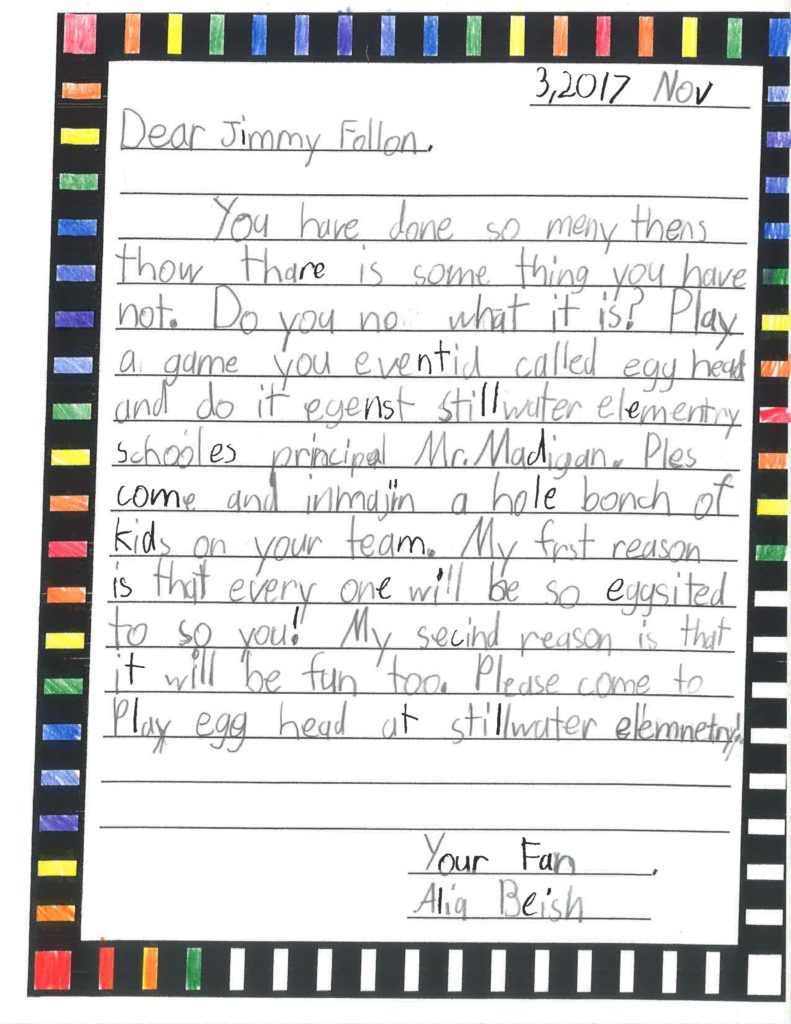 3,2017 Nov
Dear Jimmy Follon.
You have done so meny thens
thow thare is some thing you have
not. Do you no what it is? Play
a game you eventid called egg head
and do it egenst stillwater elementry
schooles principal Mr. Madigan. Ples
come and inmajin a hole bonch of
kids on your team. My frst reason
is that every one will be so eggsited
to so you! My secind reason is that
it will be fun too. Please come to
Play egg head at stillwater elemnetry!
Your Fan,
Alia Beish